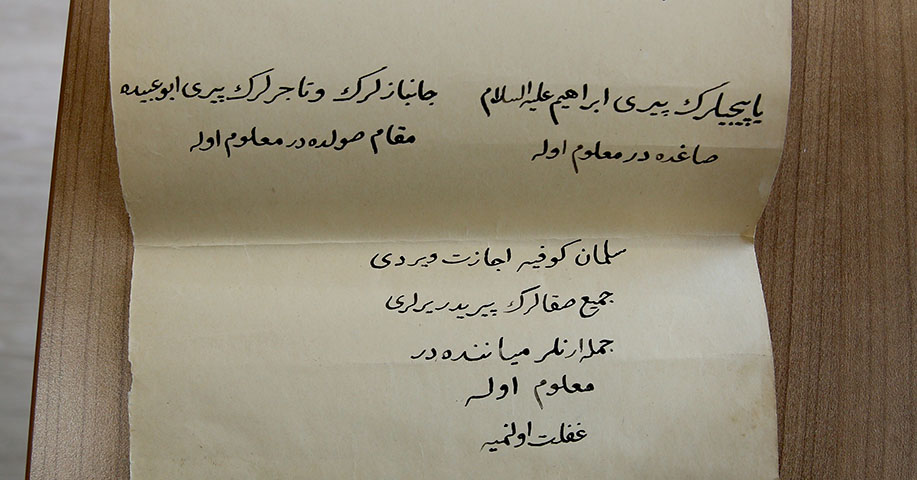 یاپیجیلرك پیری ابراهیم علیه السلام
صاغده در معلوم اوله
جانبازلرك و تاجرلرك پیری ابو عبیده
مقام صولده در معلوم اوله
سلمان كوفیه اجازت ویردی
جمیع صقالرك پیریدر یرلری
جمله ارنلر میاننده در
معلوم اوله
غفلت اولنمیه